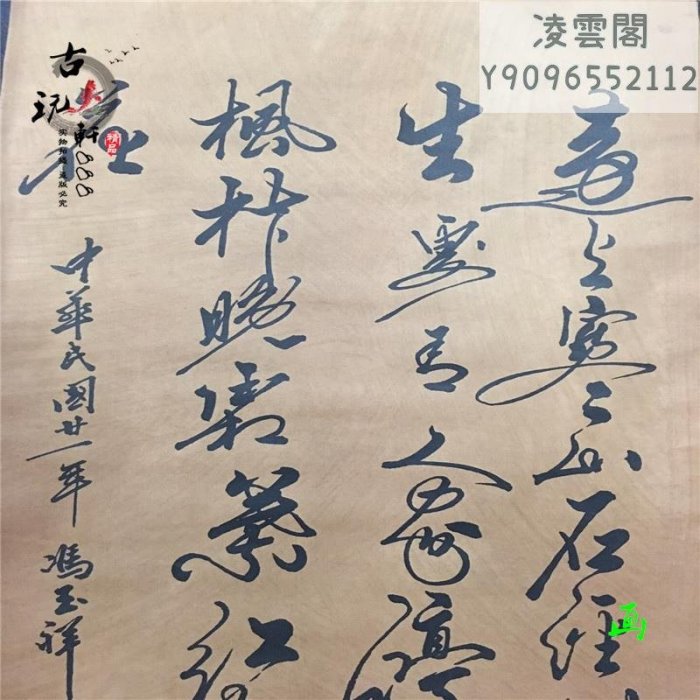 凌雲閣
Y9096552112
遠上寒山石徑
生處有人家停
楓林晚霜葉紅
花
中華民國廿一年 馮玉祥
古玩軒888
精品
实物拍摄 盗版必究
画